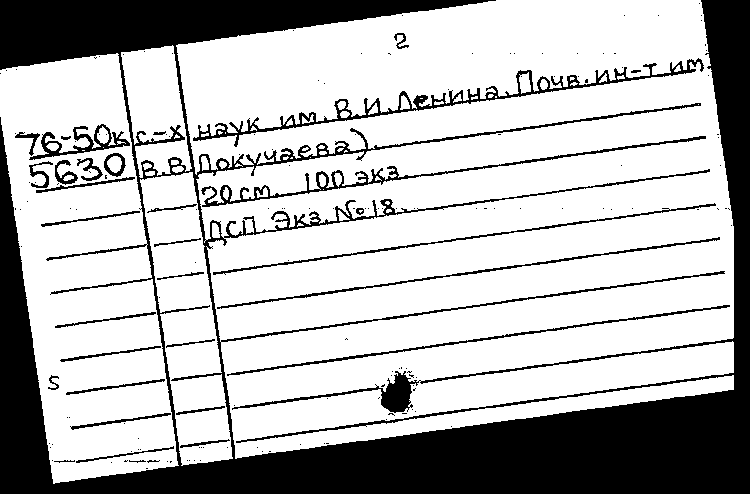 2
76-50к с.-х наук им. В.И. Ленина. Почв. ин-т им.
5630 В.В. Докучаева).
20 см. 100 экз.
ДСП. Экз. № 18.
s